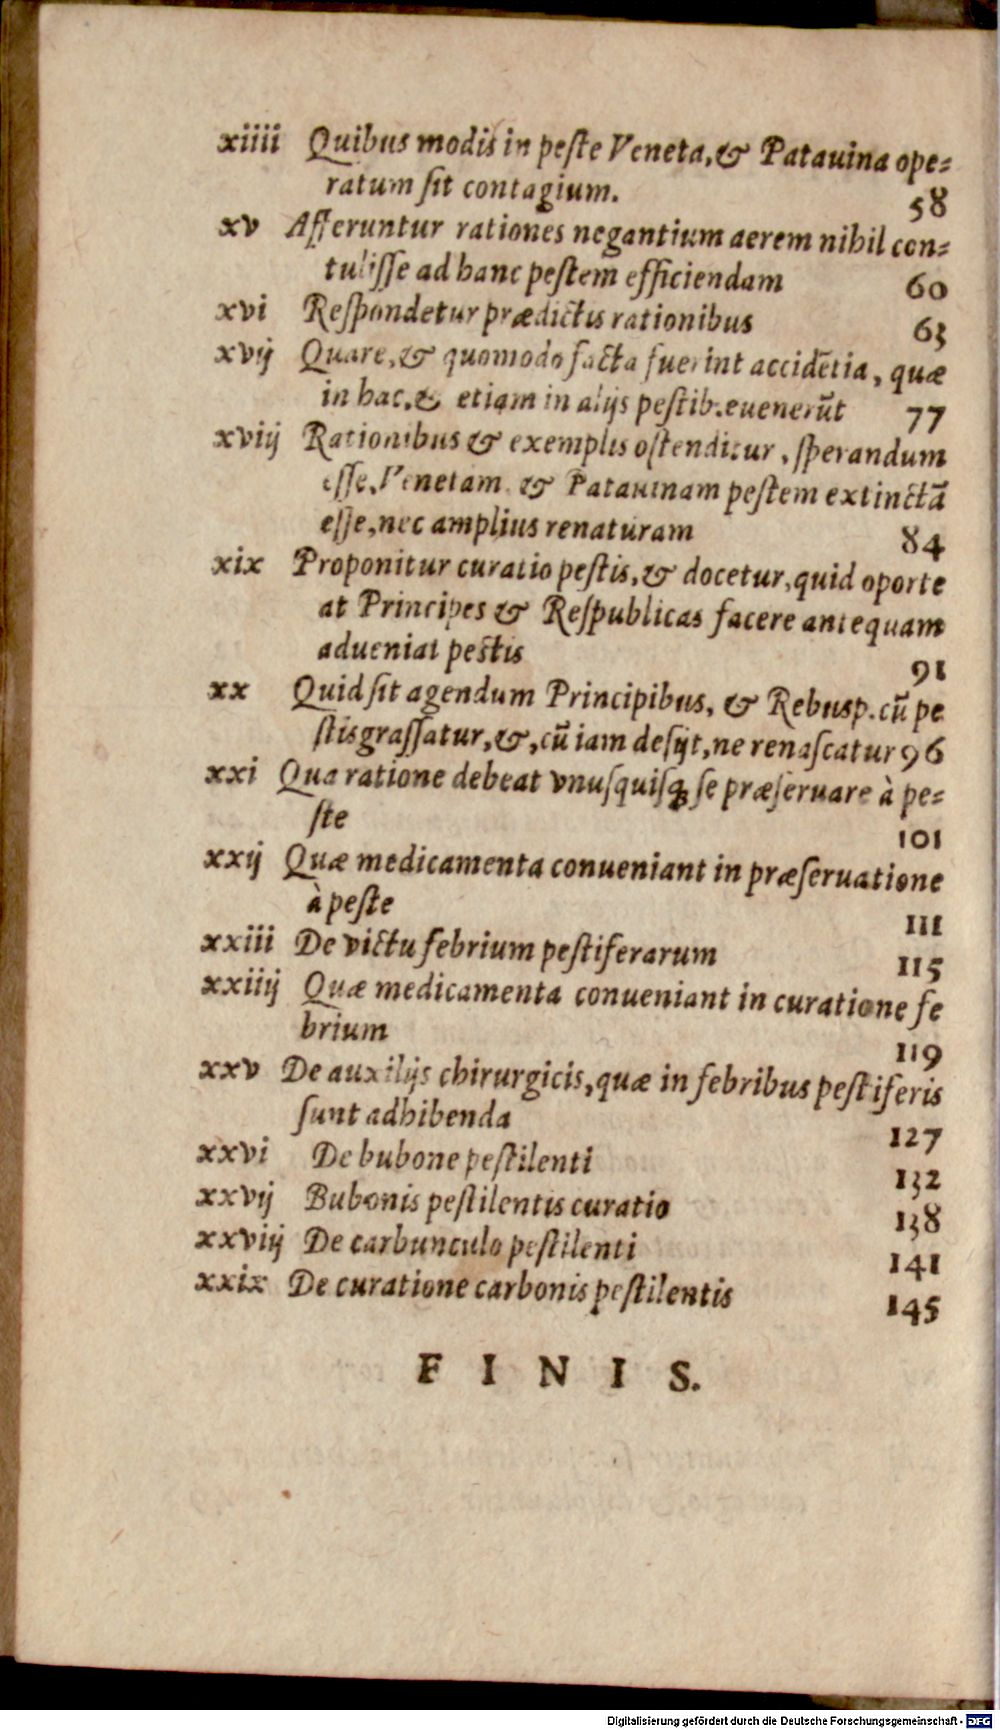 xiiii Quibus modis in peſte Veneta, & Patauina ope-
ratum ſit contagium. 58
xv Afferuntur rationes negantium aerem nihil con-
tuliſſe ad hanc peſtem efficiendam 60
xvi Reſpondetur prædictis rationibus 63
xvij Quare, & quomodo facta fuerint accidẽtia, quæ
in hac, & etiam in alijs peſtib. euenerũt 77
xviij Rationibus & exemplis oſtenditur, ſperandum
eſſe, Venetam, & Patauinam peſtem extinctã
eſſe, nec amplius renaturam 84
xix Proponitur curatio peſtis, & docetur, quid oporte
at Principes & Reſpublicas facere antequam
adueniat pestis 91
xx Quid ſit agendum Principibus, & Rebusp. cũ pe
ſtis graſſatur, &, cũ iam deſijt, ne renaſcatur 96
xxi Qua ratione debeat vnuſquiſq; ſe præſeruare à pe-
ſte 101
xxij Quæ medicamenta conueniant in præſeruatione
à peſte 111
xxiii De victu febrium peſtiferarum 115
xxiiij Quæ medicamenta conueniant in curatione fe
brium 119
xxv De auxilijs chirurgicis, quæ in febribus peſtiferis
ſunt adhibenda 127
xxvi De bubone peſtilenti 132
xxvij Bubonis peſtilentis curatio 138
xxviij De carbunculo peſtilenti 141
xxix De curatione carbonis peſtilentis 145
F I N I S.
Digitalisierung gefördert durch die Deutsche Forschungsgemeinschaft - DFG